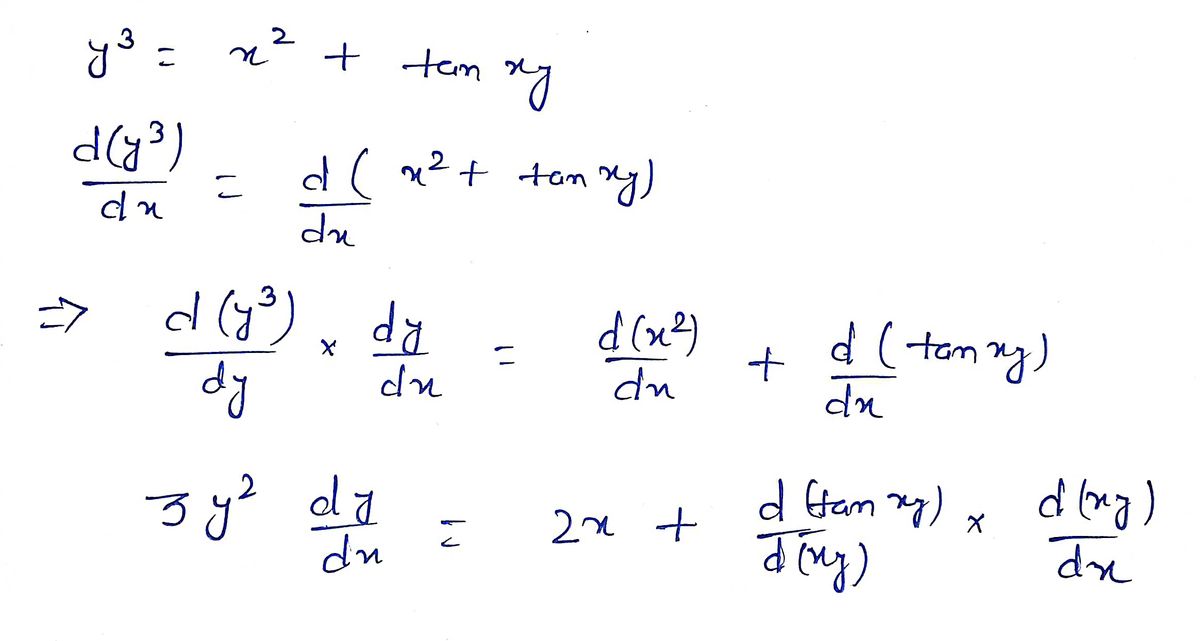 y³ = x² + tan xy
d(y³)/dx = d/dx (x² + tan xy)
⇒ d(y³)/dy × dy/dx = d(x²)/dx + d/dx (tan xy)
3y² dy/dx = 2x + d(tan xy)/d(xy) × d(xy)/dx